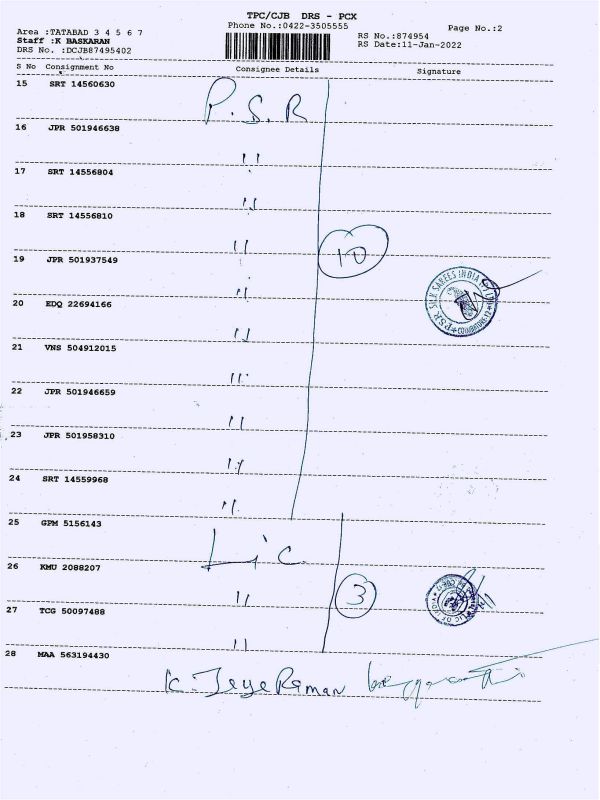 TPC/CJB DRS - PCX
Phone No.:0422-3505555
Page No.:2
Area :TATABAD 3 4 5 6 7
Staff :K BASKARAN
DRS No. :DCJB87495402
RS No.:874954
RS Date:11-Jan-2022
S No Consignment No Consignee Details Signature
15 SRT 14560630 P.S.R
16 JPR 501946638 "
17 SRT 14556804 "
18 SRT 14556810 "
10
19 JPR 501937549 "
P.S.R. SILK SAREES INDIA COIMBATORE-12
20 EDQ 22694166 "
21 VNS 504912015 "
22 JPR 501946659 "
23 JPR 501958310 "
24 SRT 14559968 "
25 GPM 5156143 Lic
26 KMU 2088207 "
3
27 TCG 50097488 "
28 MAA 563194430 K. JeyeRaman